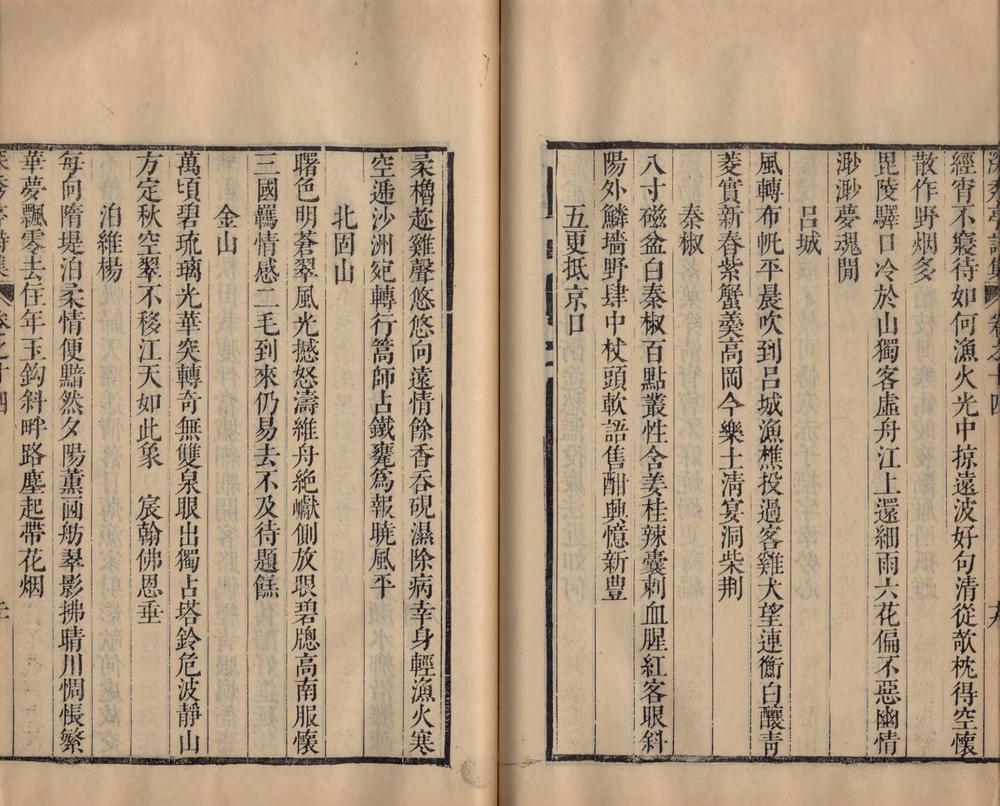 經宵不寢待如何漁火光中掠遠波好句清從欹枕得空懷
散作野烟多
毘陵驛口冷於山獨客虛舟江上還細雨六花偏不惡幽情
渺渺夢魂閒
呂城
風轉布帆平晨吹到呂城漁樵投過客雞犬望連衡白釀靑
菱實新舂紫蟹羹高岡今樂土清宴洞柴荆
秦椒
八寸磁盆白秦椒百點叢性含姜桂辣囊刺血腥紅客眼斜
陽外鱗墻野肆中杖頭軟語售酣興憶新豐
五更抵京口
柔櫓趂雞聲悠悠向遠情餘香吞硯濕除病幸身輕漁火寒
空遞沙洲宛轉行篙師占鐵甕爲報曉風平
北固山
曙色明蒼翠風光撼怒濤維舟絶巘側放眼碧牕高南服懷
三國羈情感二毛到來仍易去不及待題餻
金山
萬頃碧琉璃光華突轉奇無雙泉眼出獨占塔鈴危波靜山
方定秋空翠不移江天如此象　宸翰佛恩垂
泊維楊
每向隋堤泊柔情便黯然夕陽薰畫舫翠影拂晴川惆悵繁
華夢飄零去住年玉鈎斜畔路塵起帶花烟